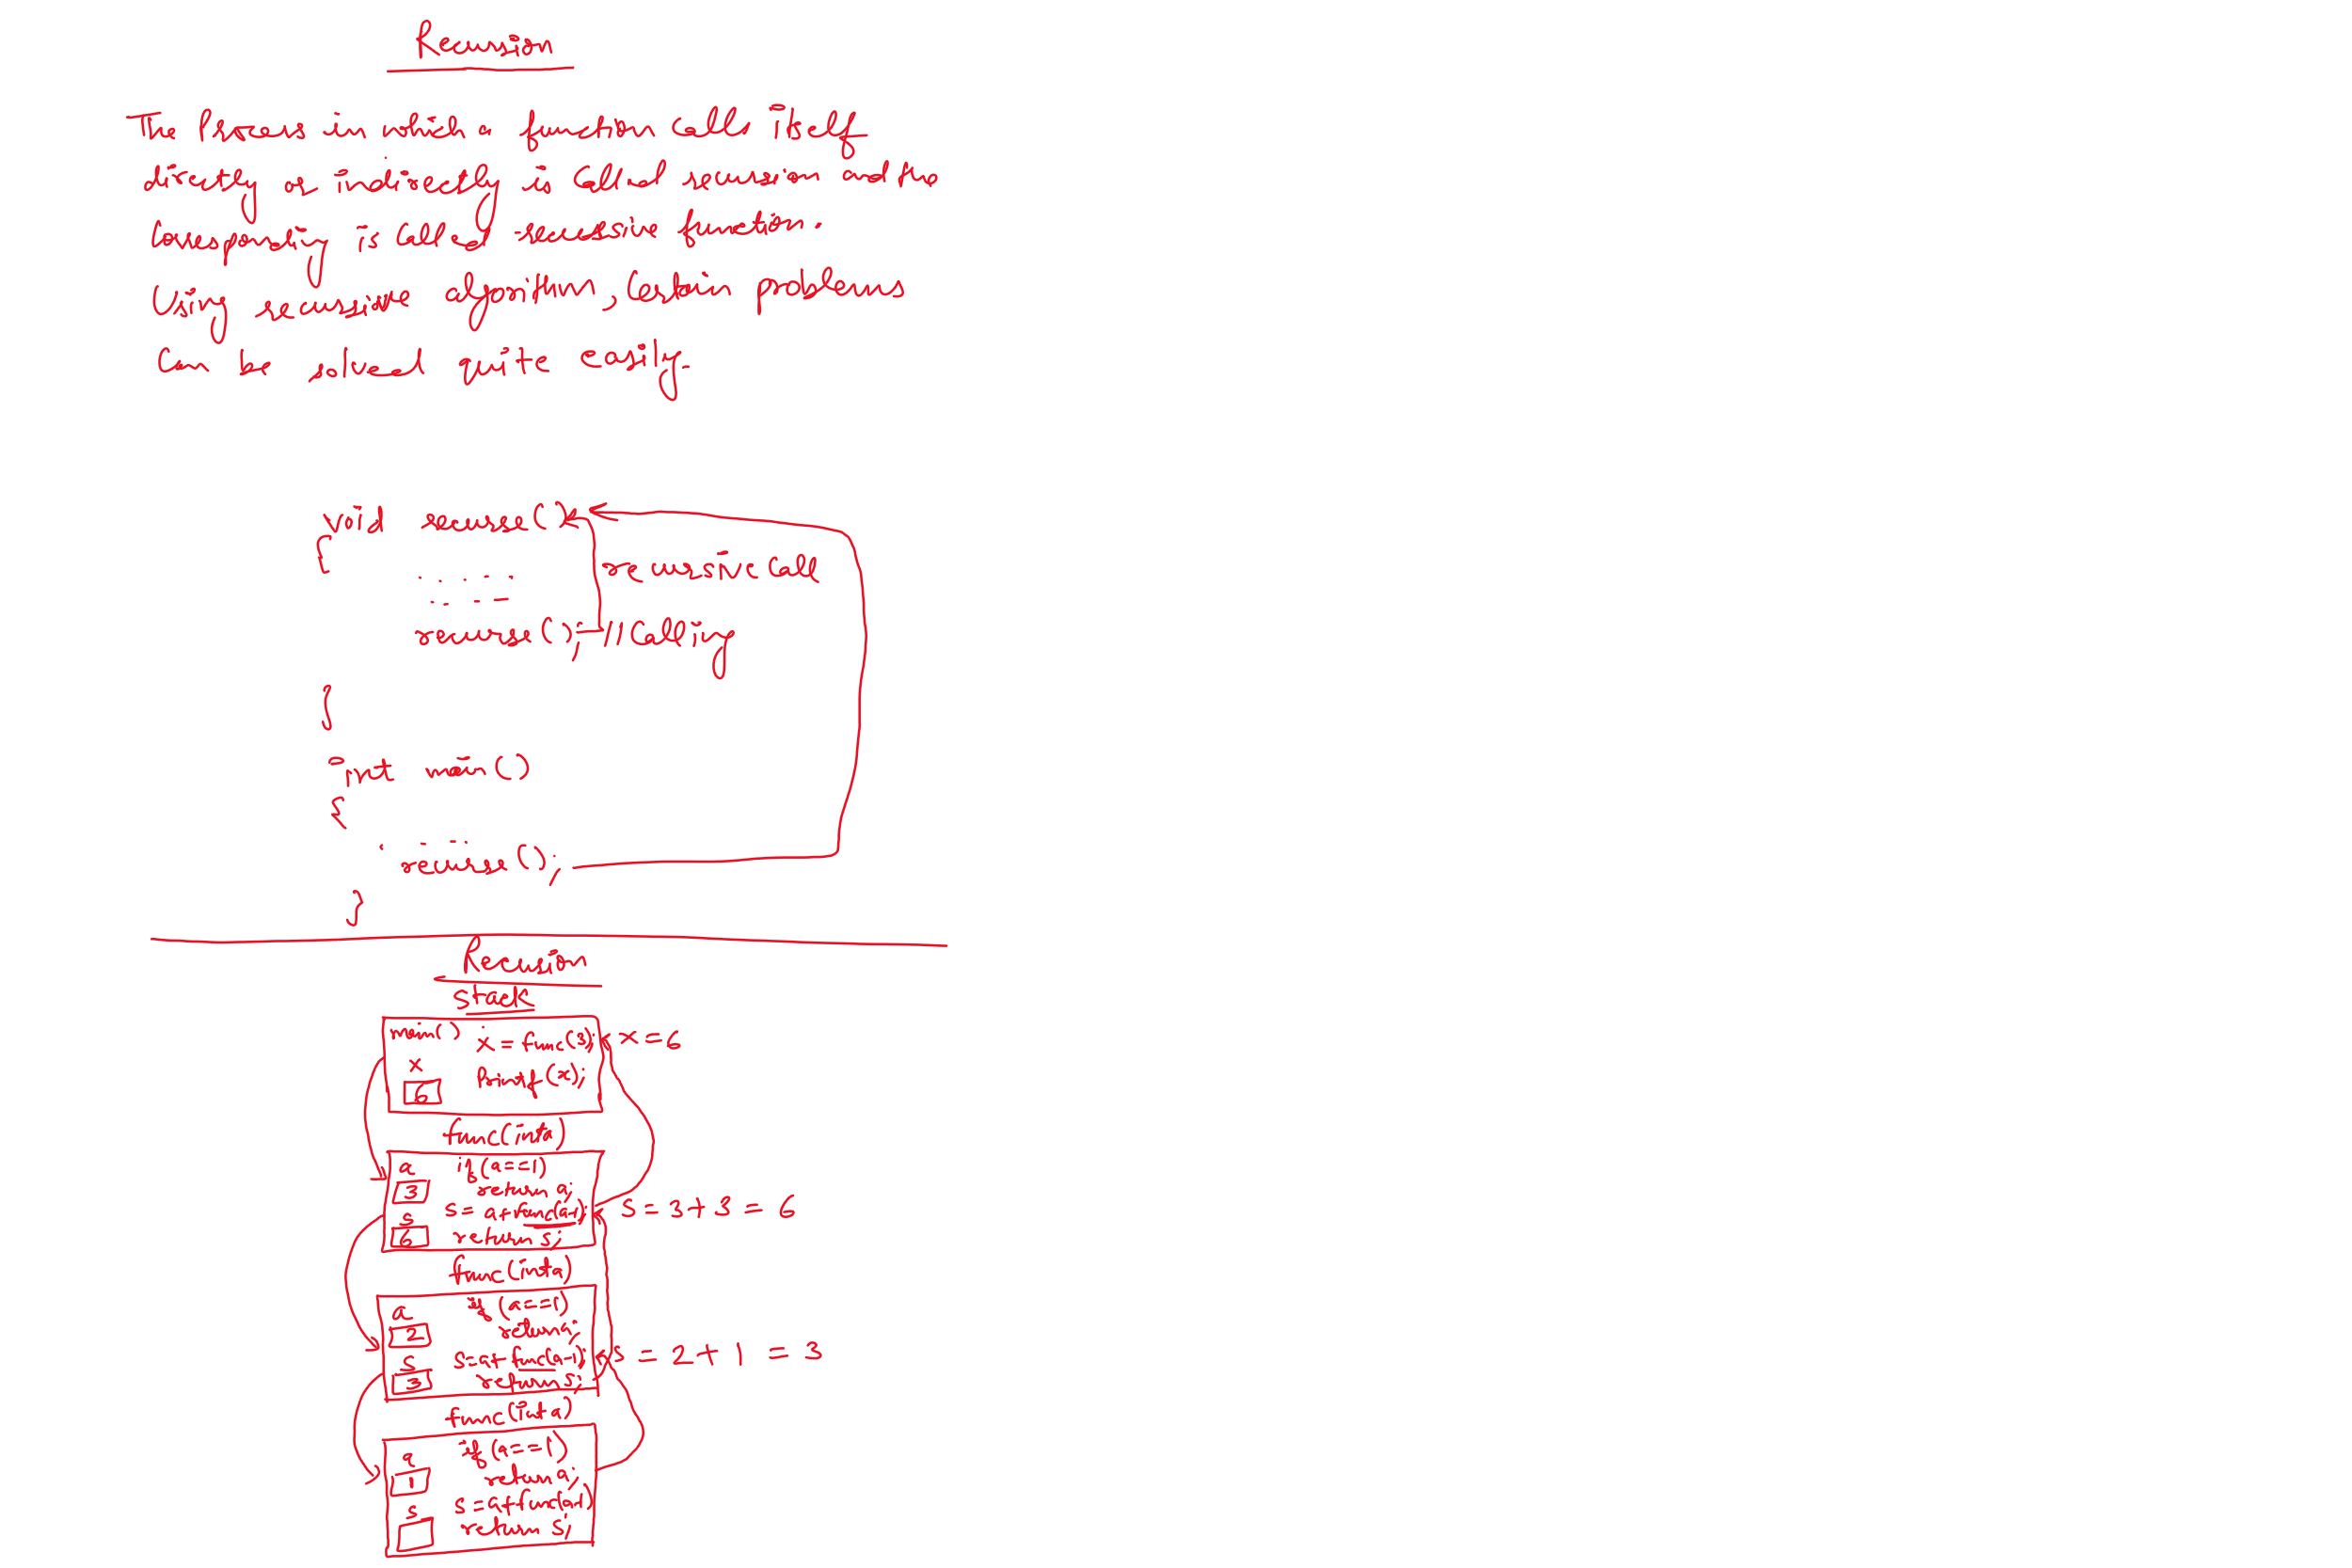 Recursion
The Process in which a function call itself
directly or indirectly is called recursion and the
Corresponding is called recursive function.
Using recursive algorithm, Certain problems
Can be solved quite easily.
void recurse()
{
.....
....
recursive Call
recurse(); // Calling
}
int main()
{
.....
recurse();
}
Recursion
stack
main() x = func(3); x = 6
x
6 Printf(x);
func(int a)
a if(a==1)
3 return a;
s s = a+func(a-1); s = 3+3 = 6
6 return s;
func(int a)
a if(a==1)
2 return a;
s s=a+func(a-1); s = 2+1 = 3
3 return s;
func(int a)
a if(a==1)
1 return a;
s s=a+func(a-1)
return s;